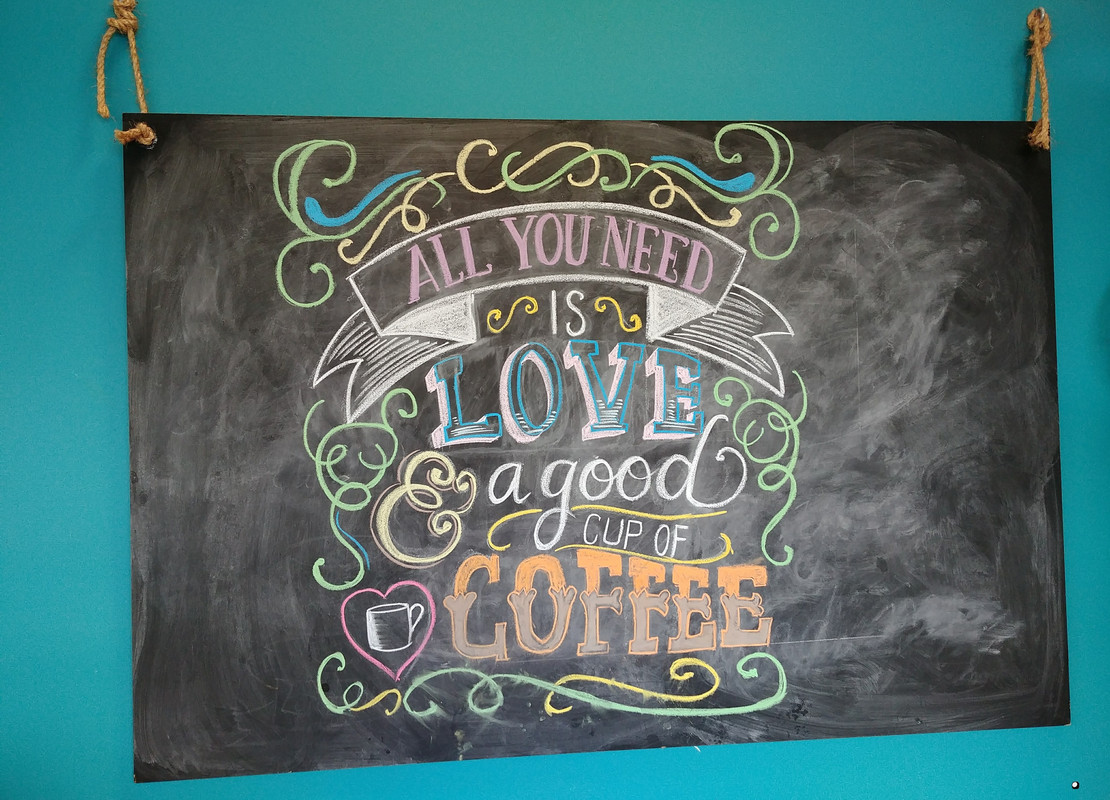 ALL YOU NEED
IS
LOVE
& a good
CUP OF
COFFEE